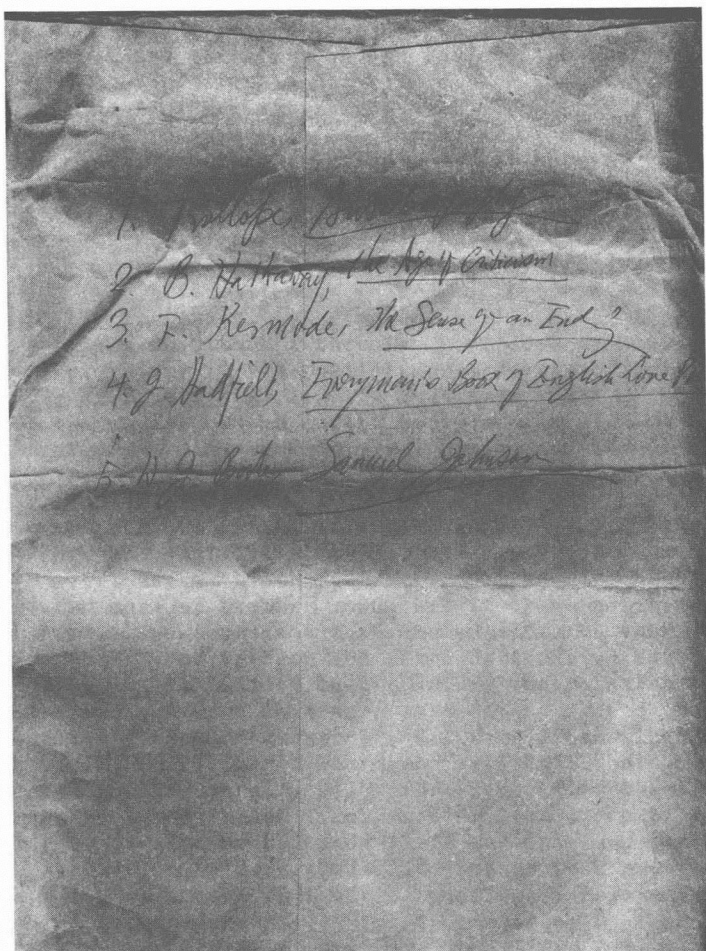 1. Trollope,
2. B. Hathaway, The Age of Criticism
3. F. Kermode, The Sense of an Ending
4. J. Hadfield, Everyman's Book of English Love
5. W. J. Samuel Johnson